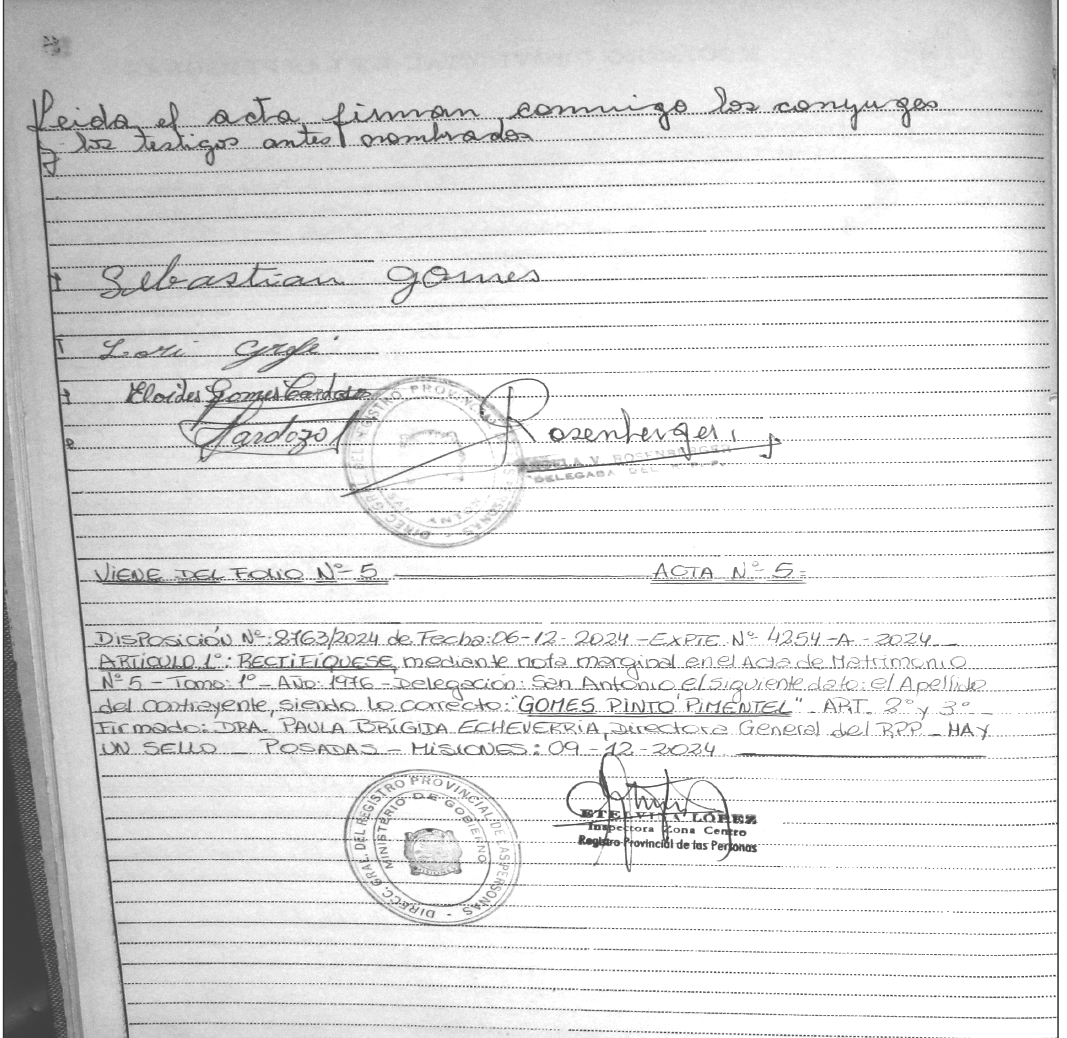 Leida el acta firman conmigo los conyuges
y los testigos antes nombrados
Sebastian gomes
Eloides Gomes Cardozo
Cardozo
Rosenberger
ANGELA V. ROSENBERGER
DELEGADA DEL R.P.P.
VIENE DEL FOLIO Nº 5 ACTA Nº 5=
DISPOSICIÓN Nº: 8763/2024 de Fecha: 06-12-2024 - EXPTE. Nº 4254-A-2024
ARTICULO 1º: RECTIFÍQUESE, mediante nota marginal en el Acta de Matrimonio
Nº 5 - Tomo: 1º - Año: 1976 - Delegación: San Antonio el siguiente dato: el Apellido
del contrayente, siendo lo correcto: "GOMES PINTO PIMENTEL" - ART. 2º y 3º
Firmado: DRA. PAULA BRÍGIDA ECHEVERRIA, Directora General del RPP - HAY
UN SELLO - POSADAS - MISIONES: 09-12-2024
DIRECC. GRAL. DEL REGISTRO PROVINCIAL DE LAS PERSONAS
MINISTERIO DE GOBIERNO
ETELVINA LOPEZ
Inspectora Zona Centro
Registro Provincial de las Personas